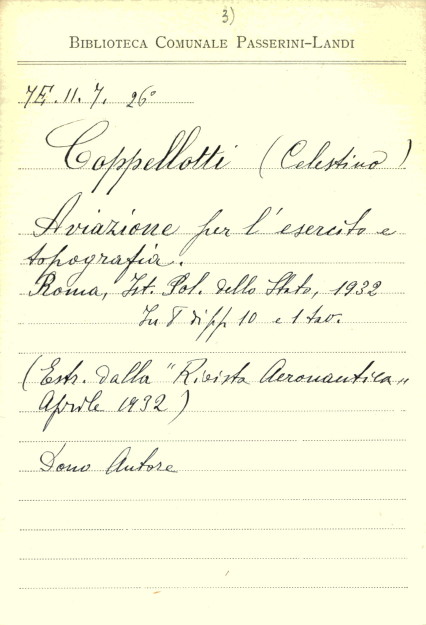 3)
BIBLIOTECA COMUNALE PASSERINI-LANDI
7E.11.7. 26°
Coppellotti (Celestino)
Aviazione per l'esercito e
topografia.
Roma, Ist. Pol. dello Stato, 1932
In 8 di pp 10 e 1 tav.
(Estr. dalla "Rivista Aeronautica„
Aprile 1932)
Dono Autore